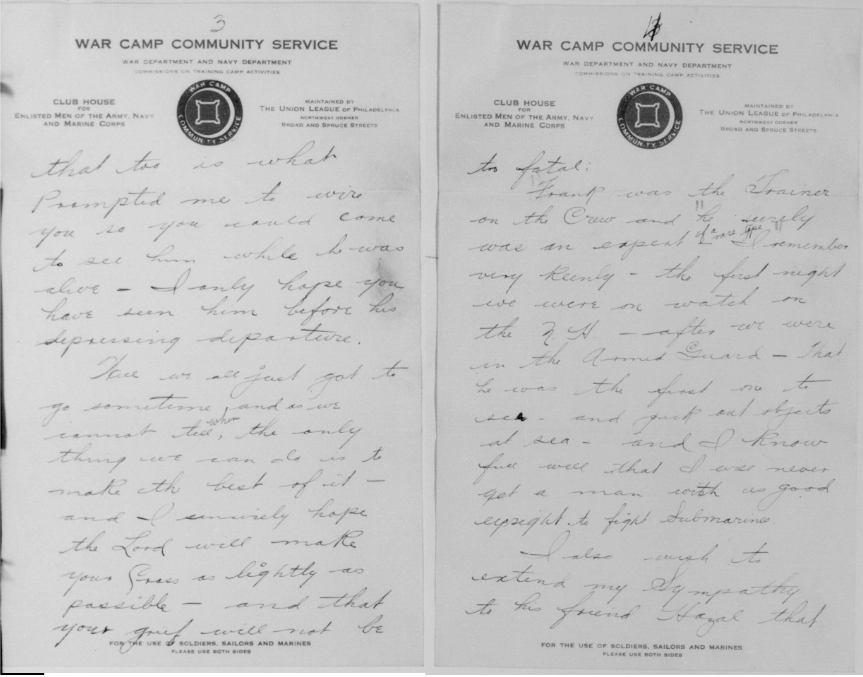 3
WAR CAMP COMMUNITY SERVICE
WAR DEPARTMENT AND NAVY DEPARTMENT
COMMISSIONS ON TRAINING CAMP ACTIVITIES
CLUB HOUSE
FOR
ENLISTED MEN OF THE ARMY, NAVY
AND MARINE CORPS
WAR CAMP
COMMUNITY SERVICE
MAINTAINED BY
THE UNION LEAGUE OF PHILADELPHIA
NORTHWEST CORNER
BROAD AND SPRUCE STREETS
that too is what
Prompted me to wire
you so you could come
to see him while he was
alive – I only hope you
have seen him before his
depressing departure.
we all just got to
go sometime, and as we
cannot tell when, the only
thing we can do is to
make the best of it –
and I sincerely hope
the Lord will make
your Cross as lightly as
possible – and that
your grief will not be
FOR THE USE OF SOLDIERS, SAILORS AND MARINES
PLEASE USE BOTH SIDES
4
WAR CAMP COMMUNITY SERVICE
WAR DEPARTMENT AND NAVY DEPARTMENT
COMMISSIONS ON TRAINING CAMP ACTIVITIES
CLUB HOUSE
FOR
ENLISTED MEN OF THE ARMY, NAVY
AND MARINE CORPS
WAR CAMP
COMMUNITY SERVICE
MAINTAINED BY
THE UNION LEAGUE OF PHILADELPHIA
NORTHWEST CORNER
BROAD AND SPRUCE STREETS
too fatal:
Frank was the Trainer
on the Crew and "he surely
was an expert of a rare type" I remember
very keenly – the first night
we were on watch on
the N H – after we were
in the Armed Guard – That
he was the first one to
see – and pick out objects
at sea – and I know
full well that I will never
get a man with as good
eyesight to fight Submarines
I also wish to
extend my Sympathy
to his friend Hazal that
FOR THE USE OF SOLDIERS, SAILORS AND MARINES
PLEASE USE BOTH SIDES